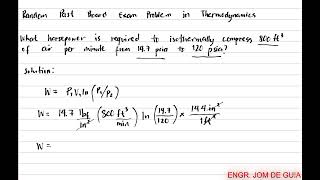 Random Past Board Exam Problem in Thermodynamics
What horsepower is required to isothermally compress 800 ft³
of air per minute from 14.7 psia to 120 psia?
Solution:
W = P₁V₁ ln (P₁/P₂)
W = 14.7 lbf/in² (800 ft³/min) ln (14.7/120) × 144 in²/1 ft²
W =
ENGR. JOM DE GUIA